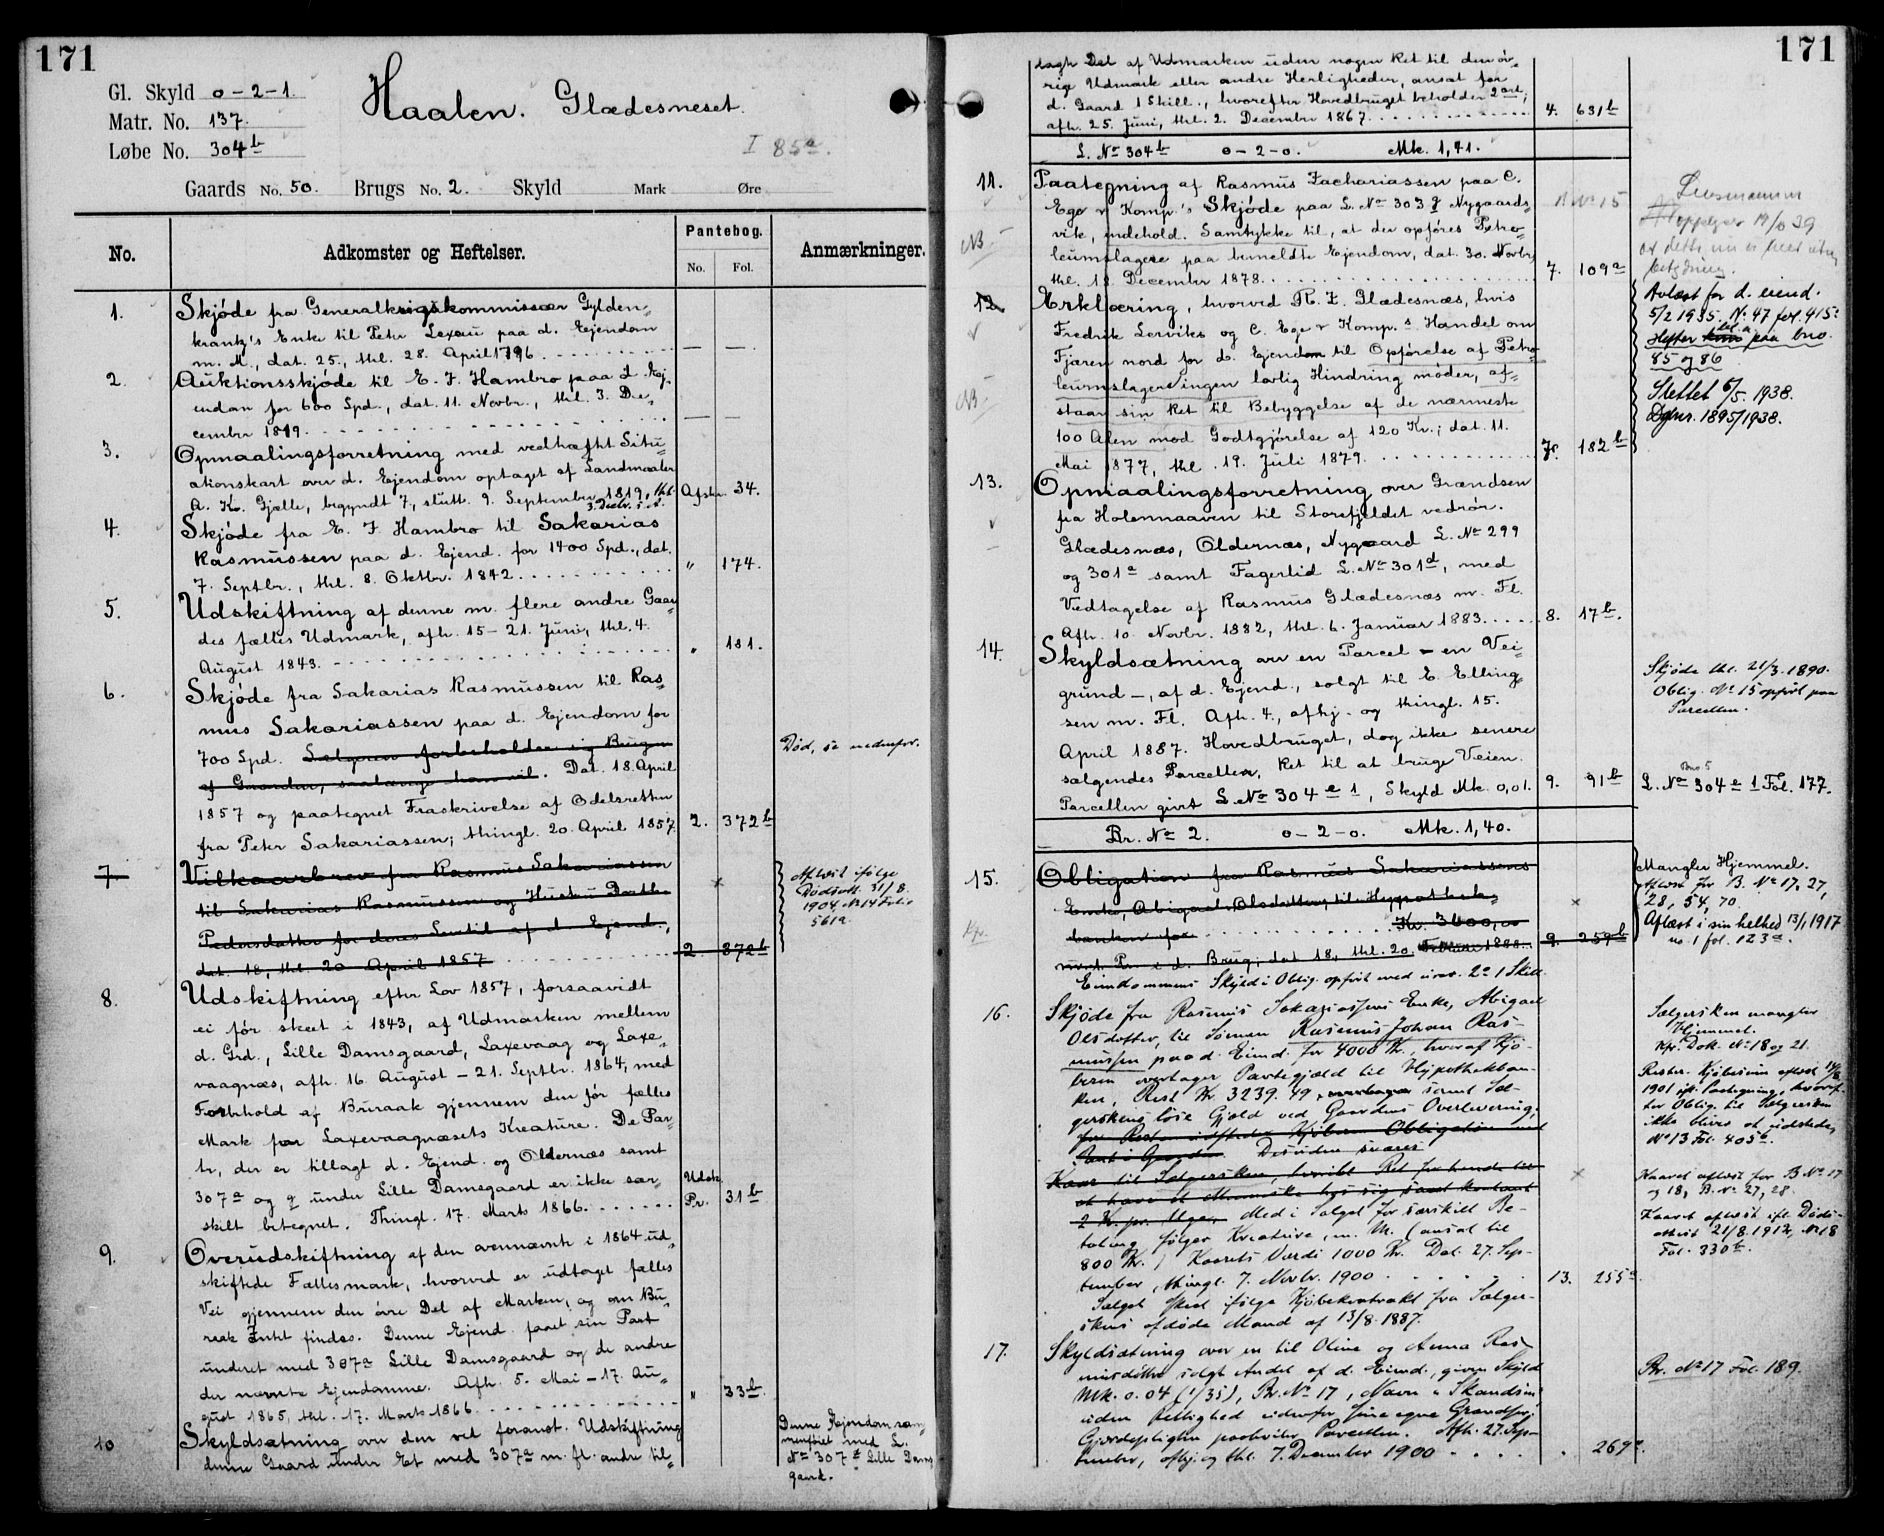 171
Gl. Skyld 0-2-1.
Matr. No. 137.
Løbe No. 304b
Haalen. Glædesneset.
I 85a.
Gaards No. 50. Brugs No. 2. Skyld Mark Øre
No. Adkomster og Heftelser. Pantebog. No. Fol. Anmærkninger.
1. Skjøde fra Generalkrigskommissær Gylden-
krantz's Enke til Peter Lexau paa d. Ejendom
m. M., dat. 25., thl. 28. April 1796. — —.
2. Auktionsskjøde til E. F. Hambro paa d. Ej-
endom for 600 Spd., dat. 11. Novbr., thl. 3. De-
cember 1819. — —
3. Opmaalingsforretning med vedhæftet Situ-
ationskart over d. Ejendom optaget af Landmaaler
A. Kr. Gjelle, begyndt 7, slutt. 9. September 1819, thl. Afskr. 34.
3. Decbr. s. A.
4. Skjøde fra E. F. Hambro til Sakarias
Rasmussen paa d. Ejend. for 1400 Spd., dat.
7. Septbr., thl. 8. Oktbr. 1842. " 174.
5. Udskiftning af denne m. flere andre Gaar-
des fælles Udmark, afh. 15-21. Juni, thl. 4.
August 1843. " 181.
6. Skjøde fra Sakarias Rasmussen til Ras-
mus Sakariassen paa d. Ejendom for
700 Spd. Sælgeren forbeholder sig Brugen
af Gaarden, saalænge han vil. Dat. 18. April
Død, se nedenfor.
1857 og paategnet Fraskrivelse af Odelsretten
fra Peter Sakariassen; thingl. 20. April 1857. 2. 372b
7. Vilkaarbrev fra Rasmus Sakariassen
til Sakarias Rasmussen og Hustru Dorthe
Pedersdatter for deres Levtid af d. Ejend.,
dat. 18, thl. 20 April 1857 2 372b
Aflæst ifølge
Dødsatt. 31/8.
1904, No 14 Folio
561a.
8. Udskiftning efter Lov 1857, forsaavidt
ei før skeet i 1843, af Udmarken mellem
d. Grd., Lille Damsgaard, Laxevaag og Laxe-
vaagnæs, afh. 16. August - 21. Septbr. 1864, med
Forbehold af Buraak gjennem den før fælles
Mark for Laxevaagnæsets Kreature. De Par-
ter, der er tillagt d. Ejend. og Oldernæs samt
307a og g under Lille Damsgaard er ikke sær- Udsk.
skilt betegnet. Thingl. 17. Marts 1866. Pr. 31b
9. Overudskiftning af den ovennævnte i 1864 ud-
skiftede Fællesmark, hvorved er udtaget fælles
Vei gjennem den øvre Del af Marken, og om Bu-
raak Intet findes. Denne Ejend. faaet sin Part
underet med 307a Lille Damsgaard og de andre
der nævnte Ejendomme. Afh. 5. Mai - 17. Au-
gust 1865, thl. 17. Marts 1866. " 33b.
10 Skyldsætning over den ved foranst. Udskiftning
denne Gaard under Et med 307a m. fl. andre til-
Denne Ejendom sam-
menføiet med L.
No 307a Lille Dams-
gaard.
171
lagte Del af Udmarken uden nogen Ret til den øv-
rige Udmark eller andre Herligheder, ansat for
d. Gaard 1 Skill., hvorefter Hovedbruget beholder 2 ort;
afh. 25. Juni, thl. 2. December 1867. 4. 631b
L. No 304b 0-2-0. Mk. 1,41.
11. Paategning af Rasmus Zachariassen paa C.
Ege & Komp.'s Skjøde paa L. No 303 g Nygaards-
NB
vik, indehold. Samtykke til, at der opføres Petro-
leumslagere paa bemeldte Ejendom, dat. 30. Novbr.
thl. 18. December 1878. 7. 109a
12. Erklæring, hvorved R. Z. Glædesnæs, hvis
Fredrik Lerviks og C. Ege & Komp.s Handel om
Fjæren nord for d. Ejendom til Opførelse af Petro-
leumslagere ingen lovlig Hindring møder, af-
NB
staar sin Ret til Bebyggelse af de nærmeste
100 Alen mod Godtgjørelse af 120 Kr.; dat. 11.
Mai 1877, thl. 19. Juli 1879. 7. 182b
Avlæst for d. eiend.
5/2 1935. No 47 fol. 415a
Hefter bl. a. paa bno.
85 og 86
Slettet 6/5. 1938.
Dgbnr. 1895/1938.
13. Opmaalingsforretning over Grændsen
fra Holenmaaven til Storefjeldet vedrør.
Glædesnæs, Oldernæs, Nygaard L. No 299
og 301a samt Fagerlid L. No 301d, med
Vedtagelse af Rasmus Glædesnæs m. Fl.
Afh. 10. Novbr. 1882, thl. 6. Januar 1883. 8. 17b.
14. Skyldsætning over en Parcel - en Vei-
grund -, af d. Ejend., solgt til E. Elling-
sen m. Fl. Afh. 4., afhj. og thingl. 15.
April 1887. Hovedbruget, dog ikke senere
sælgendes Parceller, Ret til at bruge Veien.
Parcellen givet L. No 304 e 1, Skyld Mk. 0,01. 9. 91b
Skjøde thl. 21/3. 1890.
Oblig. No 15 opført paa
Parcellen.
Bno 5
L. No 304 e 1 Fol. 177.
Br. No 2. 0-2-0. Mk. 1,40.
15. Obligation fra Rasmus Sakariassens
Enke, Abigael Olsdatter, til Hypothek-
banken for Kr. 3600,00
mod Pr. i d. Brug; dat 18, thl. 20. Februar 1888. 9. 259b
Eiendommens Skyld i Oblig. opført med urev. 2 ort 1 Skill
Mangler Hjemmel.
Aflæst for B. No 17, 27,
28, 54, 70.
Aflæst i sin helhed 13/1 1917
no. 1 fol. 123a.
16. Skjøde fra Rasmus Sakariassens Enke, Abigael
Olsdatter, til Sønnen Rasmus Johan Ras-
mussen paa d. Eiend. for 4000 Kr., hvoraf Kjø-
beren overtager Pantegjæld til Hypothekban-
ken, Rest Kr. 3239.49, samt Sæl-
gerskens løse Gjæld ved Gaardens Overlevering;
for Resten udsteder Kjøberen Obligation med
Pant i Gaarden. Desuden svares
Kaar til Sælgersken, hvoriblt. Ret for hende til
at have et Menneske hos sig samt kontant
2 Kr. pr. Uge. Med i Salget for særskilt Be-
taling følger Kreature, m. M. (ansat til
800 Kr.) Kaarets Værdi 1000 Kr. Dat. 27. Sep-
tember, thingl. 7. Novbr. 1900 13. 255a.
Salget skeet ifølge Kjøbekontrakt fra Sælger-
skens afdøde Mand af 13/8. 1887.
Sælgersken mangler
Hjemmel.
Kfr. Dok. No 18 og 21.
Kaaret aflæst for B No 17
og 18, B. No. 27, 28.
Kaaret aflæst ifl. Døds-
attest 21/8. 1912, No 18
Fol. 330b.
17. Skyldsætning over en til Oline og Anna Ras-
musdøtre solgt Andel af d. Eiend., given Skyld
Mk. 0.04 (1/35), Br. No 17, Navn "Skandsen"
uden Rettighed udenfor sine egne Grændser;
Gjerdepligten paahviler Parcellen. Afh. 27. Sep-
tember, afhj. og thl. 7. December 1900 " 269a.
Br. No 17 Fol. 189.